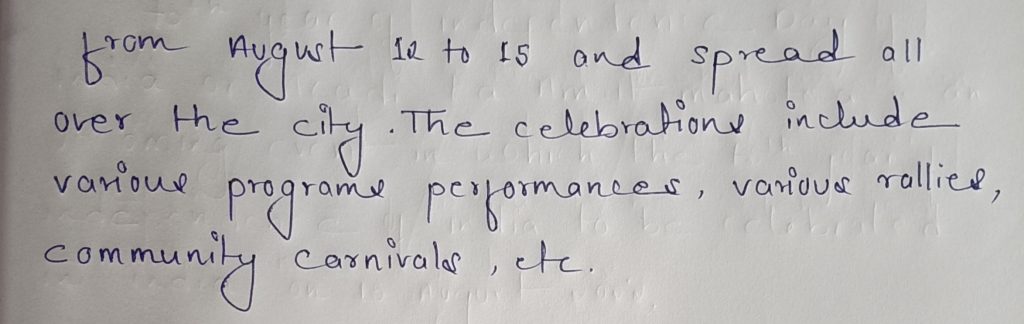 from August 12 to 15 and spread all
over the city. The celebrations include
various programs performances, various rallies,
community carnivals, etc.